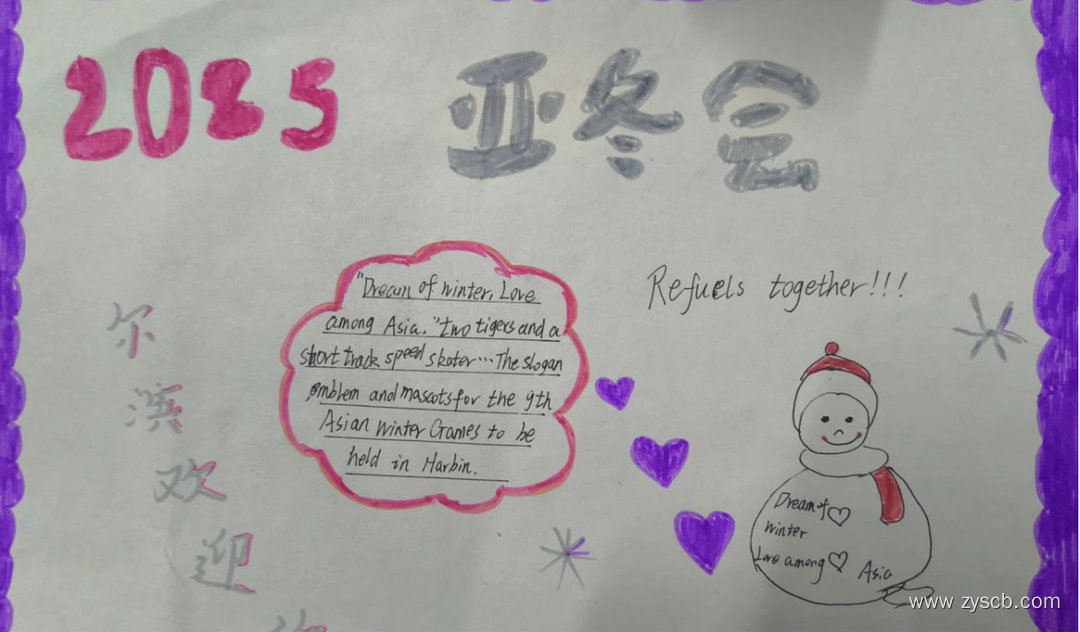 2025
亚冬会
"Dream of winter, Love
among Asia."two tigers and a
short track speed skater…The slogan
,emblem and mascots for the 9th
Asian Winter Games to be
held in Harbin.
Refuels together!!!
尔
滨
欢
迎
Dream of
Winter
Love among
Asia
www.zyscb.com